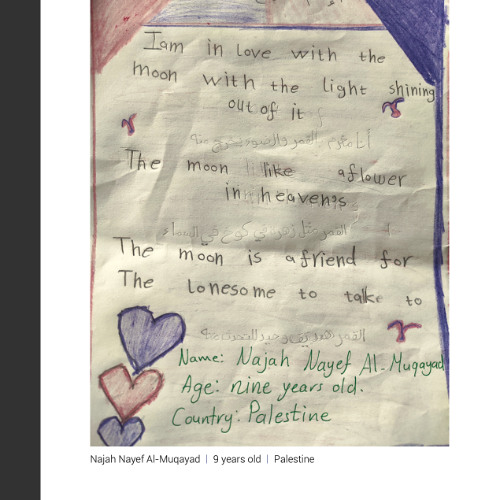 I am in love with the
moon with the light shining
out of it
أنا مغرم بالقمر والضوء يخرج منه
The moon like a flower
in heavens
القمر مثل زهرة في السماء
The moon is a friend for
The lonesome to talke to
القمر صديق وحيد للتحدث منه
Name: Najah Nayef Al-Muqayad
Age: nine years old.
Country: Palestine
Najah Nayef Al-Muqayad | 9 years old | Palestine